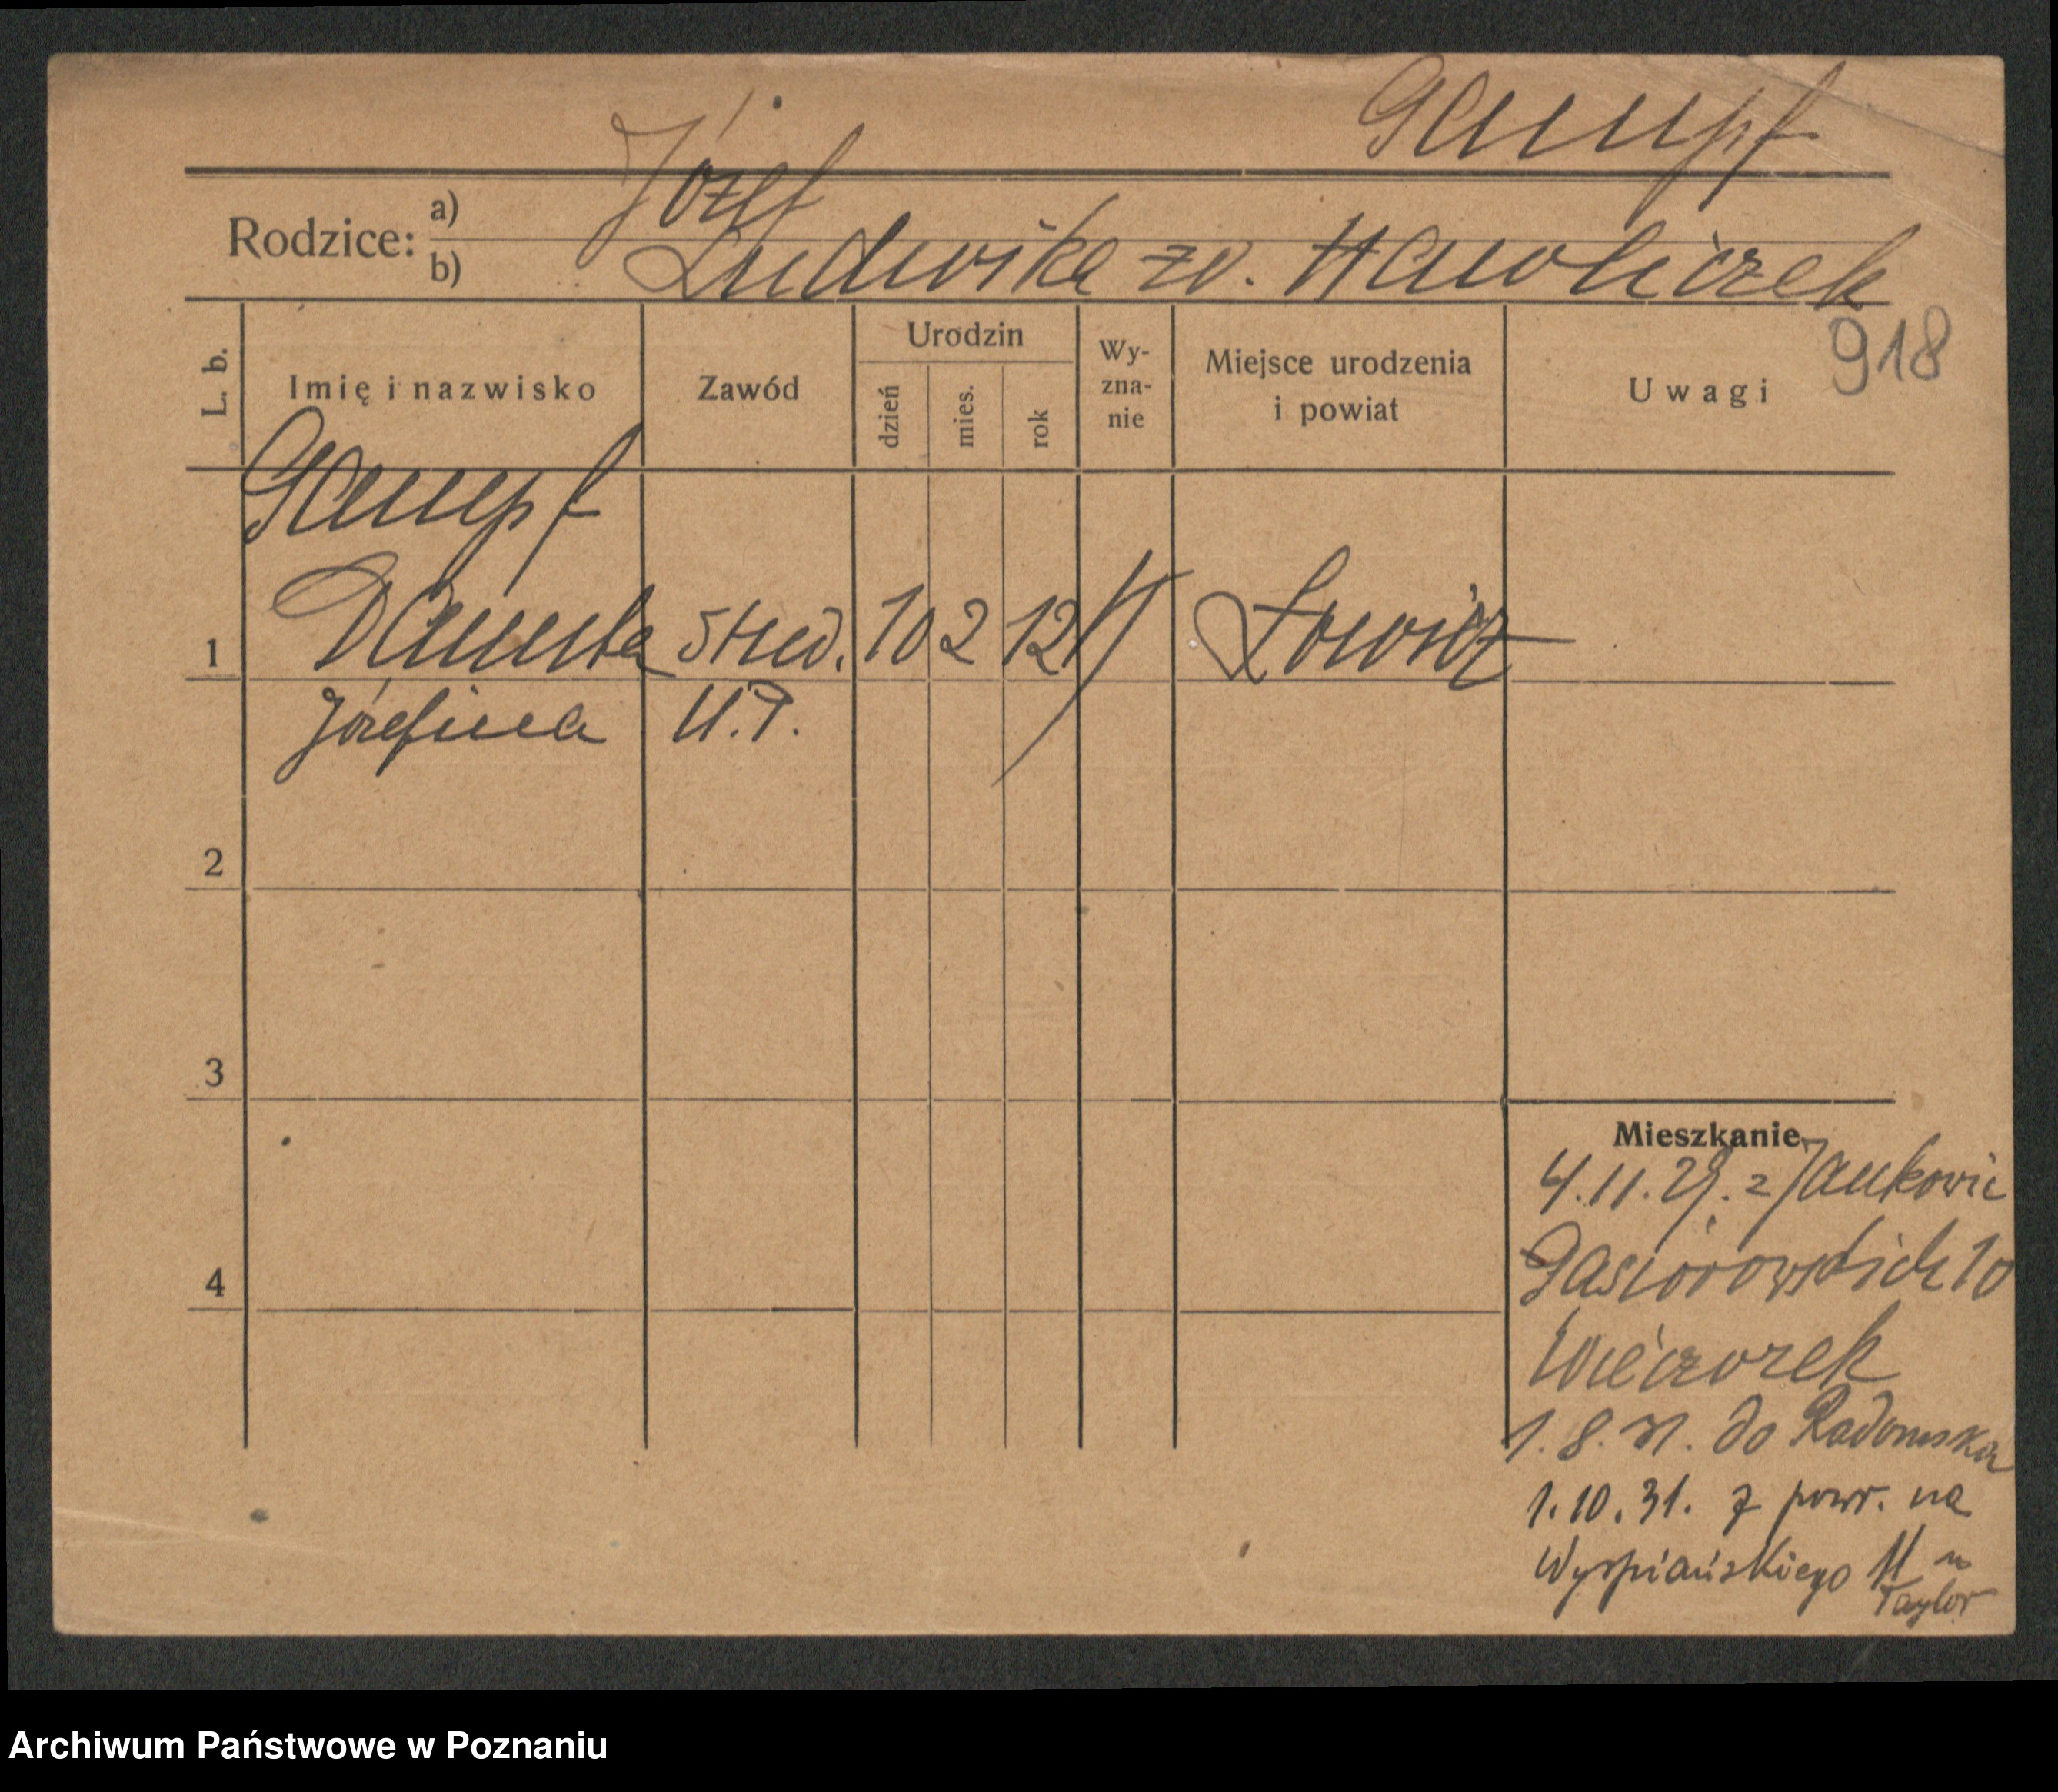 Gampf
Józef
Rodzice: a)
b) Ludwika zd. Hawliczek
918
L. b.
Imię i nazwisko
Zawód
Urodzin
dzień
mies.
rok
Wy-
zna-
nie
Miejsce urodzenia
i powiat
Uwagi
Gampf
1 Danuta stud. 10 2 12 Łowicz
Józefina U.P.
2
3
4
Mieszkanie
4.11.29. z Jankowic
Gąsiorowskich 10
Wieczorek
1.8.31. do Radomska
1.10.31. z powr. na
Wyspiańskiego 11 u
Taylor
Archiwum Państwowe w Poznaniu